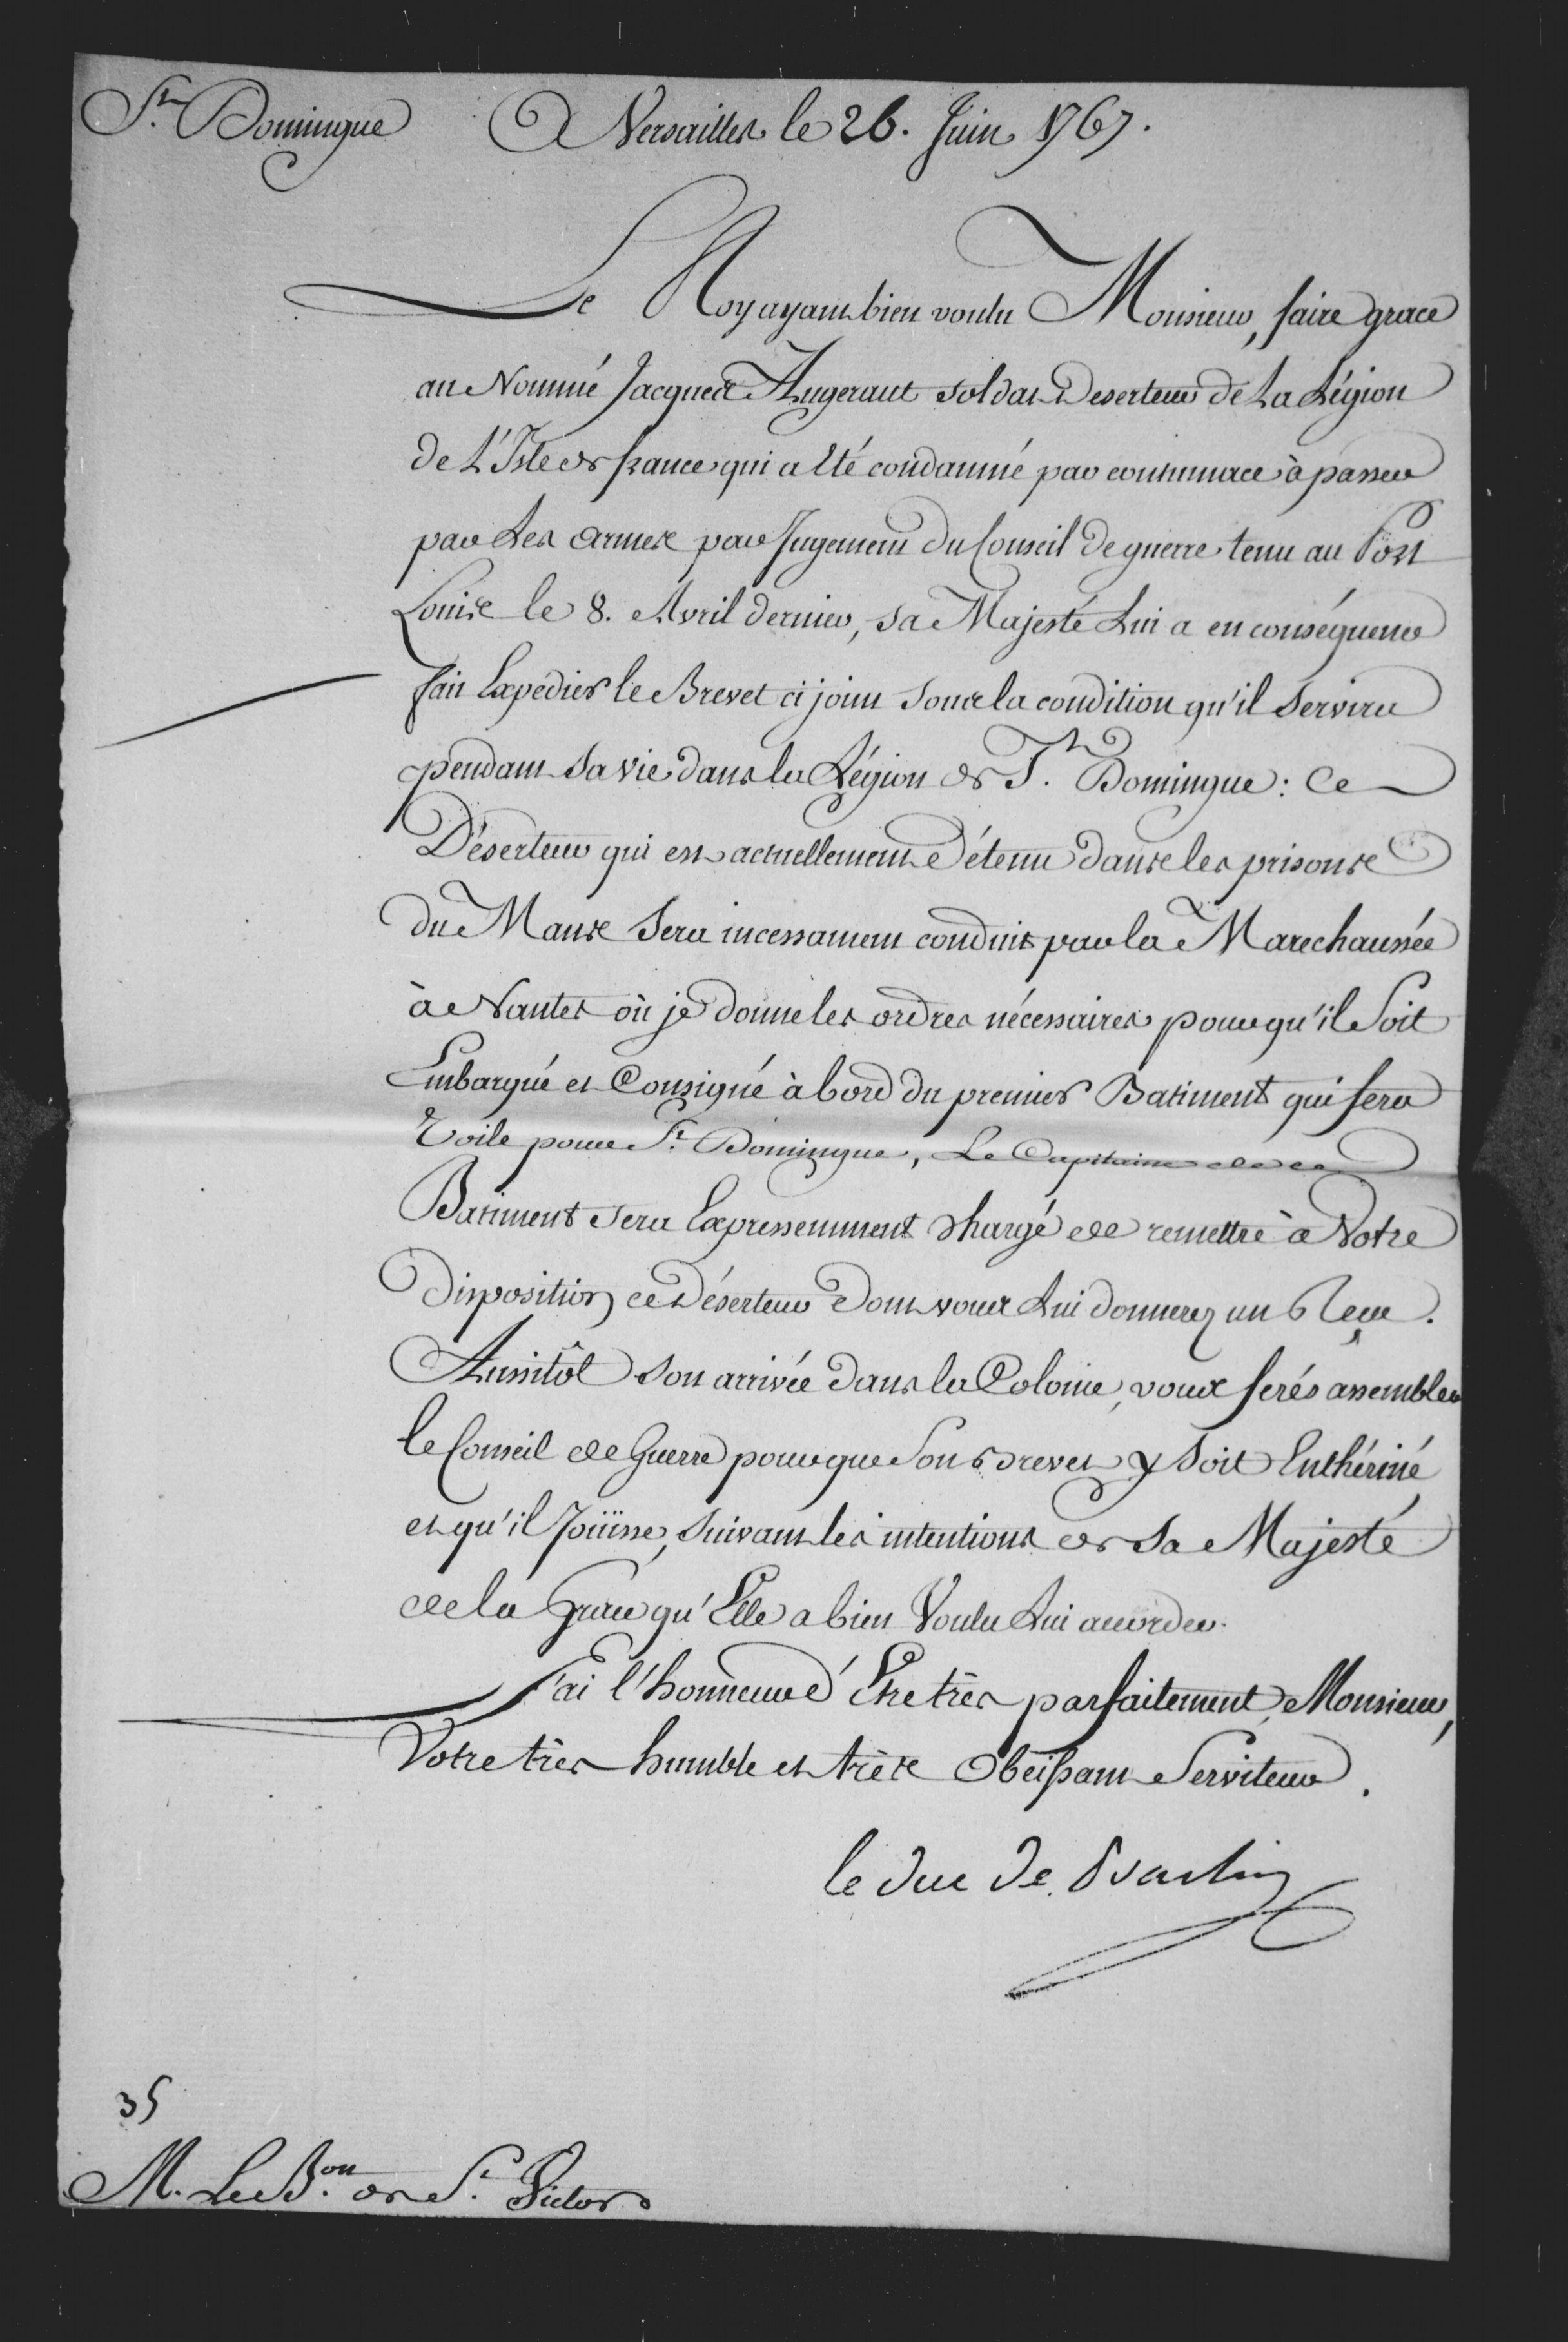 St. Domingue A Versailles le 26. Juin 1767.
Le Roy ayant bien voulu Monsieur, faire grace
au Nommé Jacques Augeraut soldat Deserteur de La Légion
de L'Isle de france qui a Eté condamné par contumace à passer
par Les armes par Jugement du Conseil de guerre tenu au Port
Louis le 8. Avril dernier, sa Majesté Lui a en conséquence
fait Expédier le Brevet ci joint sous la condition qu'il servira
pendant sa vie dans la Légion de St. Domingue: Ce
Déserteur qui est actuellement Détenu dans les prisons
du Mans sera incessament conduit par la Marechaussée
à Nantes où je donne les ordres nécessaires pour qu'il soit
Embarqué et Consigné à bord du premier Batiment qui fera
Voile pour St. Domingue, Le Capitaine de ce
Batiment sera Expressemment chargé de remettre à Votre
Disposition ce Déserteur Dont vous Lui donnerez un Reçu.
Aussitôt son arrivée dans la Colonie, vous ferés assembler
le Conseil de Guerre pour que son Brevet y soit Enthériné
et qu'il Joüisse, suivant les intentions de sa Majesté
de la Grace qu'Elle a bien Voulu Lui accorder.
J'ai l'honneur d'Etre très parfaitement, Monsieur,
Votre très humble et très Obeissant Serviteur.
le duc de Praslin
35
M. Le Bon. de St. Victor